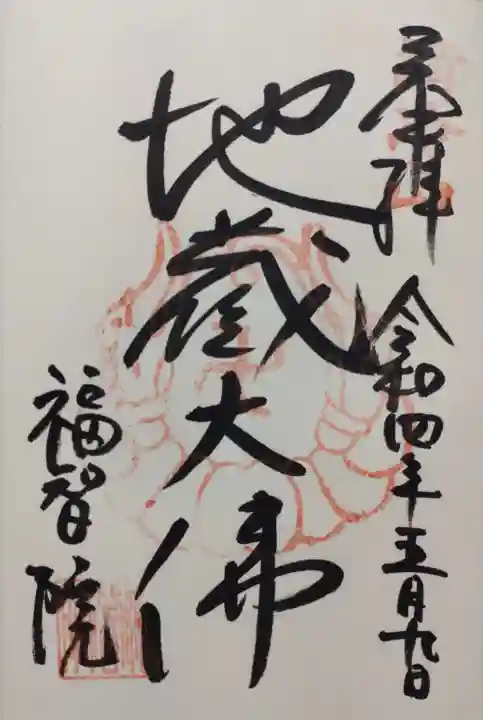 奉拝 令和四年五月九日
地蔵大佛
福智院